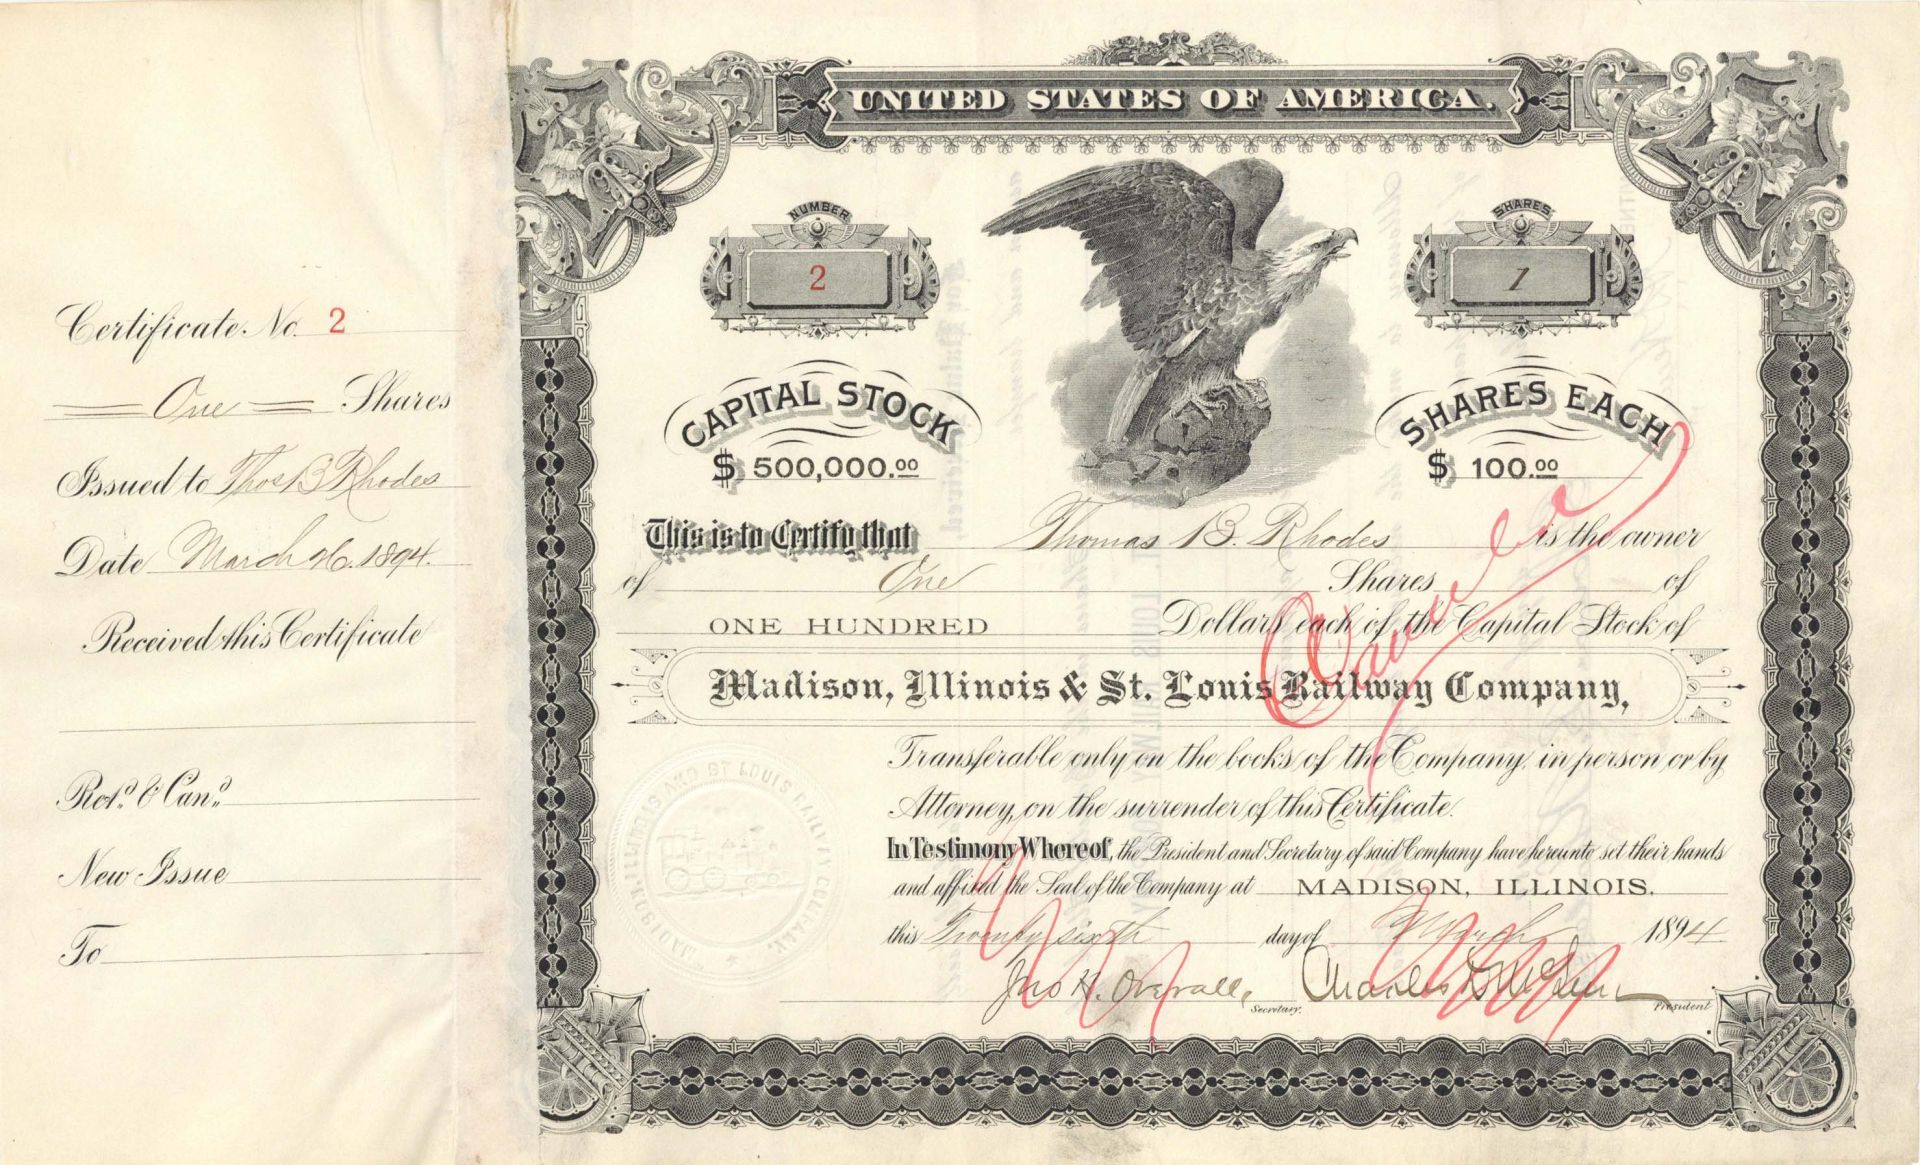 Certificate No. 2
One Shares
Issued to Thos B Rhodes
Date March 26. 1894.
Received this Certificate
Ret.d & Can.d
New Issue
To
UNITED STATES OF AMERICA.
NUMBER
2
SHARES
1
CAPITAL STOCK
$ 500,000.00
SHARES EACH
$ 100.00
This is to Certify that Thomas B. Rhodes is the owner
of One Shares of
ONE HUNDRED Dollars each of the Capital Stock of
Madison, Illinois & St. Louis Railway Company,
Cancelled
Transferable only on the books of the Company, in person or by
Attorney, on the surrender of this Certificate.
In Testimony Whereof, the President and Secretary of said Company have hereunto set their hands
and affixed the Seal of the Company at MADISON, ILLINOIS.
this Twenty sixth day of March 1894
Jno H. Overall, Secretary.
Charles President
MADISON, ILLINOIS AND ST LOUIS RAILWAY COMPANY.